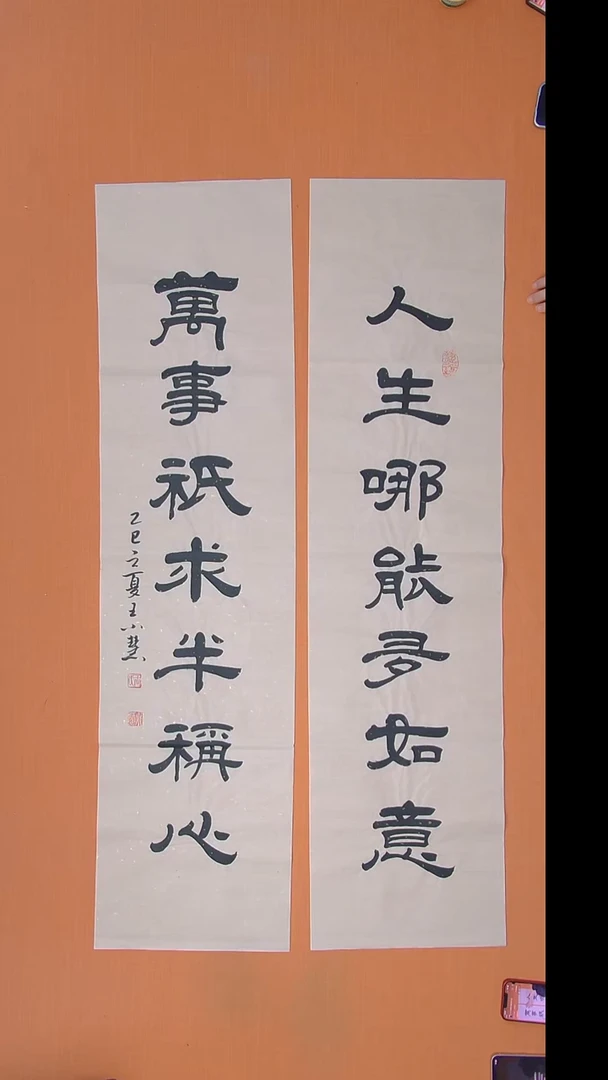 人生哪能多如意
萬事祇求半稱心
乙巳立夏王小慧